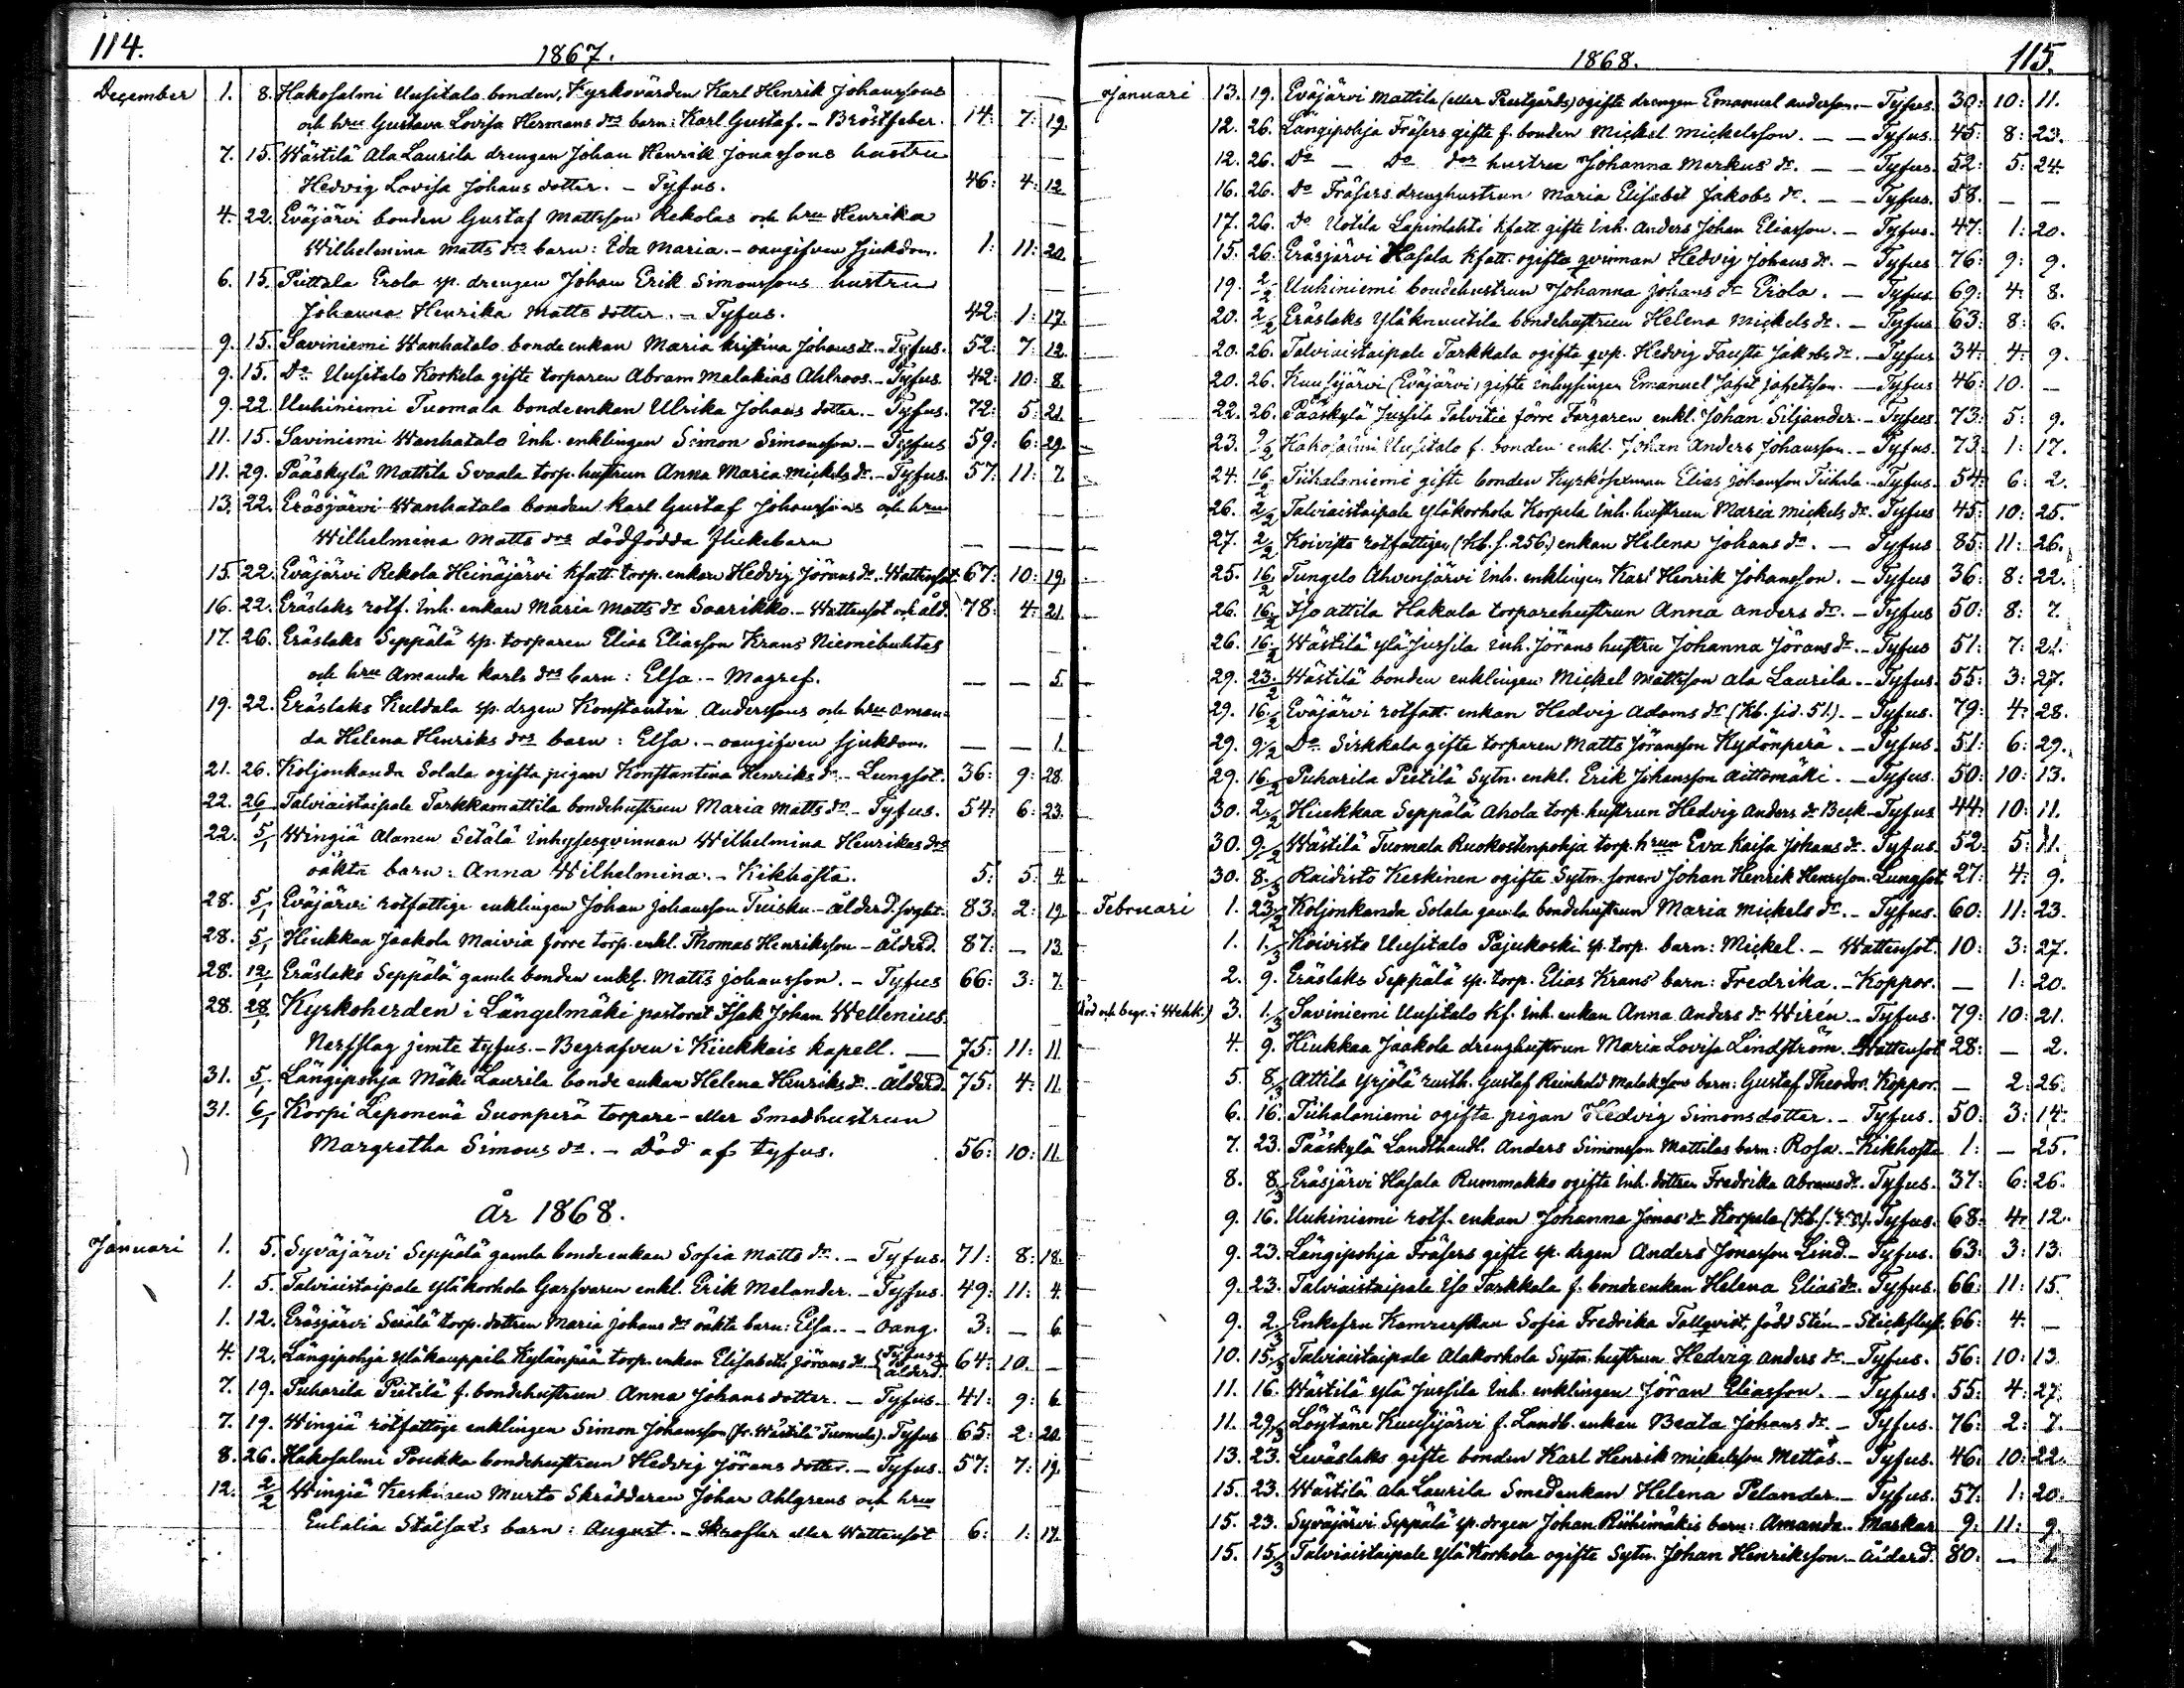 114.
1867.
December 1. 8. Hakosalmi Uusitalo bonden, Kyrkovärden Karl Henrik Johanssons
och hru Gustava Lovisa Hermans drs barn: Karl Gustaf. - Bröstfeber. 14: 7: 19.
7. 15. Wästilä Ala Laurila drengen Johan Henrik Jonassons hustru
Hedvig Lovisa Johans dotter. - Tyfus. 46: 4: 12.
4. 22. Eväjärvi bonden Gustaf Mattsson Rekolas och hru Henrika
Wilhelmina Matts drs barn: Ida Maria. - oangifven sjukdom. 1: 11: 20.
6. 15. Puttala Erola sp. drengen Johan Erik Simonssons hustru
Johanna Henrika Matts dotter. - Tyfus. 42: 1: 17.
9. 15. Saviniemi Wanhatalo bonde enkan Maria Kristina Johans dr. - Tyfus. 52: 7: 12.
9. 15. Do Uusitalo Korkela gifte torparen Abram Malakias Ahlroos. - Tyfus. 42: 10: 8.
9. 22. Uuhiniemi Tuomala bondeenkan Ulrika Johans dotter. - Tyfus. 72: 5: 21.
11. 15. Saviniemi Wanhatalo Inh. enklingen Simon Simonsson. - Tyfus 59: 6: 29.
11. 29. Pääskylä Mattila Svaala torp. hustrun Anna Maria Mickels dr. - Tyfus. 57: 11: 7.
13. 22. Eräsjärvi Wanhatalo bonden Karl Gustaf Johanssons och hru
Wilhelmina Matts drs dödfödda flickebarn — — —
15. 22. Eväjärvi Rekola Heinäjärvi kfatt. torp. enkan Hedvig Jörans dr. Wattensot 67: 10: 19.
16. 22. Eräslaks rotf. Inh. enkan Maria Matts dr Saarikko. - Wattensot och åld. 78: 4: 21.
17. 26. Eräslaks Seppälä sp. torparen Elias Eliasson Krans Niemibuktas
och hru Amanda Karls drs barn: Elsa. - Magref. — — 5.
19. 22. Eräslaks Kuldala sp. drgen Konstantin Anderssons och hru Aman=
da Helena Henriks drs barn: Elsa. - oangifven sjukdom. — — 1.
21. 26. Koljonkanda Solala ogifta pigan Konstantina Henriks dr. - Lungsot. 36: 9: 28.
22. 26/1 Talviaistaipale Tarkkamattila bondehustrun Maria Matts dr. - Tyfus. 54: 6: 23.
22. 5/1 Wingiä Alanen Setälä Inhysesqvinnan Wilhelmina Henrikas drs
oäkta barn: Anna Wilhelmina. - Kikhosta. 5: 5: 4.
28. 5/1 Eväjärvi rotfattige enklingen Johan Johansson Tuisku. - ålderd. svght. 83: 2: 19.
28. 5/1 Hiukkaa Jaakola Maivia förre torp. enkl. Thomas Henriksson - Ålderd. 87: — 13.
28. 12/1 Eräslaks Seppälä gamle bonden enkl. Matts Johansson. - Tyfus 66: 3: 7.
28. 28/1 Kyrkoherden i Längelmäki pastorat Isak Johan Wellenius.
Nerfslag jemte tyfus. - Begrafven i Kuukkais kapell. — 75: 11: 11.
31. 5/1 Längipohja Mäki Laurila bonde enkan Helena Henriks dr. - Ålderd. 75: 4: 11.
31. 6/1 Korpi Leponenä Suonperä torpare- eller Smedhustrun
Margretha Simons dr. - Död af tyfus. 56: 10: 11.
År 1868.
Januari 1. 5. Syväjärvi Seppälä gamla bondeenkan Sofia Matts dr. - Tyfus. 71: 8: 18.
1. 5. Talviaistaipale Yläkorhola Garfvaren enkl. Erik Melander. - Tyfus. 49: 11: 4.
1. 12. Eräsjärvi torp. dottren Maria Johans drs oäkta barn: Elsa. - Oang. 3: — 6.
4. 12. Längipohja Yläkauppila Kylänpää torp. enkan Elisabeth Jörans dr - Tyfus o. ålderd. 64: 10. —
7. 19. Puharila Pietilä f. bondehustrun Anna Johans dotter. - Tyfus. 41: 9: 6.
7. 19. Wingiä rotfattige enklingen Simon Johansson (fr. Wästilä Tuomola). Tyfus 65: 2: 20.
8. 26. Hakosalmi Poukka bondehustrun Hedvig Jörans dotter. - Tyfus. 57: 7: 19.
12. 2/2 Wingiä Keskinen Murto Skräddaren Johan Ahlgrens och hru
Eulalia barn: August. - eller Wattensot 6: 1: 17.
1868.
115.
Januari 13. 19. Eväjärvi Mattila (eller Prestgårds) ogifte drengen Emanuel Andersson. - Tyfus. 30: 10: 11.
12. 26. Längipohja Fräsers gifte f. bonden Mickel Mickelsson. — — Tyfus. 45: 8: 23.
12. 26. Do — Do drs hustru Johanna Markus dr. — — Tyfus. 52: 5: 24.
16. 26. Do Fräsers drenghustrun Maria Elisabet Jakobs dr. — — Tyfus. 58. — —
17. 26. Do Uotila Lapinlahti kfatt. gifte Inh. Anders Johan Eliasson. - Tyfus. 47: 1: 20.
15. 26. Eräsjärvi Hasala kfatt. ogifta qvinnan Hedvig Johans dr. - Tyfus 76: 9: 9.
19. 2/2 Uuhiniemi bondehustrun Johanna Johans dr Erola. - Tyfus. 69: 4: 8.
20. 2/2 Eräslaks Yläknuutila bondehustrun Helena Mickels dr. - Tyfus 63: 8: 6.
20. 26. Talviaistaipale Tarkkala ogifta qvp. Hedvig Fausta Jakobs dr. - Tyfus 34: 4: 9.
20. 26. Kuusijärvi (Eväjärvi) gifte inhysingen Emanuel Jafet Jafetsson. - Tyfus 46: 10. —
22. 26. Pääskylä Jussila Talvitie förre Färgaren enkl. Johan Siljander. - Tyfus. 73: 5: 9.
23. 9/2 Hakosalmi Uusitalo f. bonden enkl. Johan Anders Johansson. - Tyfus. 73: 1: 17.
24. 16/2 Tiihalaniemi gifte bonden Kyrkösexman Elias Johansson Tiihala. - Tyfus. 54: 6: 2.
26. 2/2 Talviaistaipale Yläkorhola Korpela Inh. hustrun Maria Mickels dr. Tyfus 45: 10: 25.
27. 2/2 Koivisto rotfattiges (Kb. s. 256.) enkan Helena Johans dr. - Tyfus 85: 11: 26.
25. 16/2 Tungelo Ahvenjärvi Inh. enklingen Karl Henrik Johansson. - Tyfus 36: 8: 22.
26. 16/2 Iso attila Hakala torparehustrun Anna Anders dr. - Tyfus 50: 8: 7.
26. 16/2 Wästilä Ylä Jussila Inh. Jörans hustru Johanna Jörans dr. - Tyfus 51: 7: 21.
29. 23/2 Wästilä bonden enklingen Mickel Mattsson Ala Laurila. - Tyfus. 55: 3: 27.
29. 16/2 Eväjärvi rotfatt. enkan Hedvig Adams dr (Kb. sid. 51.). - Tyfus. 79: 4: 28.
29. 9/2 Do. Sirkkala gifte torparen Matts Jöransson Kydönperä. - Tyfus. 51: 6: 29.
29. 16/2 Puharila Pietilä Sytn. enkl. Erik Johansson Aittomäki. - Tyfus. 50: 10: 13.
30. 2/2 Hiukkaa Seppälä Ahola torp. hustrun Hedvig Anders dr Beck - Tyfus 44: 10: 11.
30. 9/2 Wästilä Tuomala Ruokostenpohja torp. hrun Eva Kaisa Johans dr. Tyfus. 52: 5: 11.
30. 8/3 Raidisto Keskinen ogifte Sytn. sonen Johan Henrik Henrsson. Lungsot. 27: 4: 9.
Februari 1. 23/2 Koljonkanda Solala gamla bondehustrun Maria Mickels dr. - Tyfus. 60: 11: 23.
1. 1/3 Koivisto Uusitalo Pajukoski sp. torp. barn: Mickel. - Wattensot. 10: 3: 27.
2. 9. Eräslaks Seppälä sp. torp. Elias Krans barn: Fredrika. - Koppor. — 1: 20.
(död och begr. i Wehk.) 3. 1/3 Saviniemi Uusitalo kf. Inh. enkan Anna Anders dr Wirén. - Tyfus. 79: 10: 21.
4. 9. Hiukkaa Jaakola drenghustrun Maria Lovisa Lindström. - Wattensot 28: — 2.
5. 8/3 Attila Yrjölä rusth. Gustaf Reinhold Malaksson barn: Gustaf Theodor. Koppor. — 2: 26.
6. 16. Tiihalaniemi ogifta pigan Hedvig Simonsdotter. - Tyfus. 50: 3: 14.
7. 23. Pääskylä Landthandl. Anders Simonsson Mattilas barn: Rosa. - Kikhosta 1: — 25.
8. 8/3 Eräsjärvi Hasala Rummakko ogifte Inh. dottren Fredrika Abrams dr. Tyfus. 37: 6: 26.
9. 16. Uuhiniemi rotf. enkan Johanna Jonas dr Korpela Tyfus. 68: 4: 12.
9. 23. Längipohja Fräsers gifte sp. drgen Anders Jonasson Lind. - Tyfus. 63: 3: 13.
9. 23. Talviaistaipale Iso Tarkkala f. bondeenkan Helena Elias dr. Tyfus. 66: 11: 15.
9. 2/3 Enkefru Kamrerskan Sofia Fredrika Tallqvist, född Stén. - Stickfluss. 66: 4. —
10. 15/3 Talviaistaipala Alakorhola Sytn. hustrun Hedvig Anders dr. - Tyfus. 56: 10: 13.
11. 16. Wästilä Ylä Jussila Inh. enklingen Jöran Eliasson. - Tyfus. 55: 4: 27.
11. 29/3 Löytäne Kuusijärvi f. Landb. enkan Beata Johans dr. - Tyfus. 76: 2: 7.
13. 23. Leväslaks gifte bonden Karl Henrik Mickelsson Mettäs. - Tyfus. 46: 10: 22.
15. 23. Wästilä Ala Laurila Smedenkan Helena Pelander. - Tyfus. 57: 1: 20.
15. 23. Syväjärvi Seppälä sp. drgen Johan Riihimäkis barn: Amanda. - Maskar 9: 11: 9.
15. 15/3 Talviaistaipale Ylä Korhola ogifte Sytn. Johan Henriksson. - Ålderd. 80. —